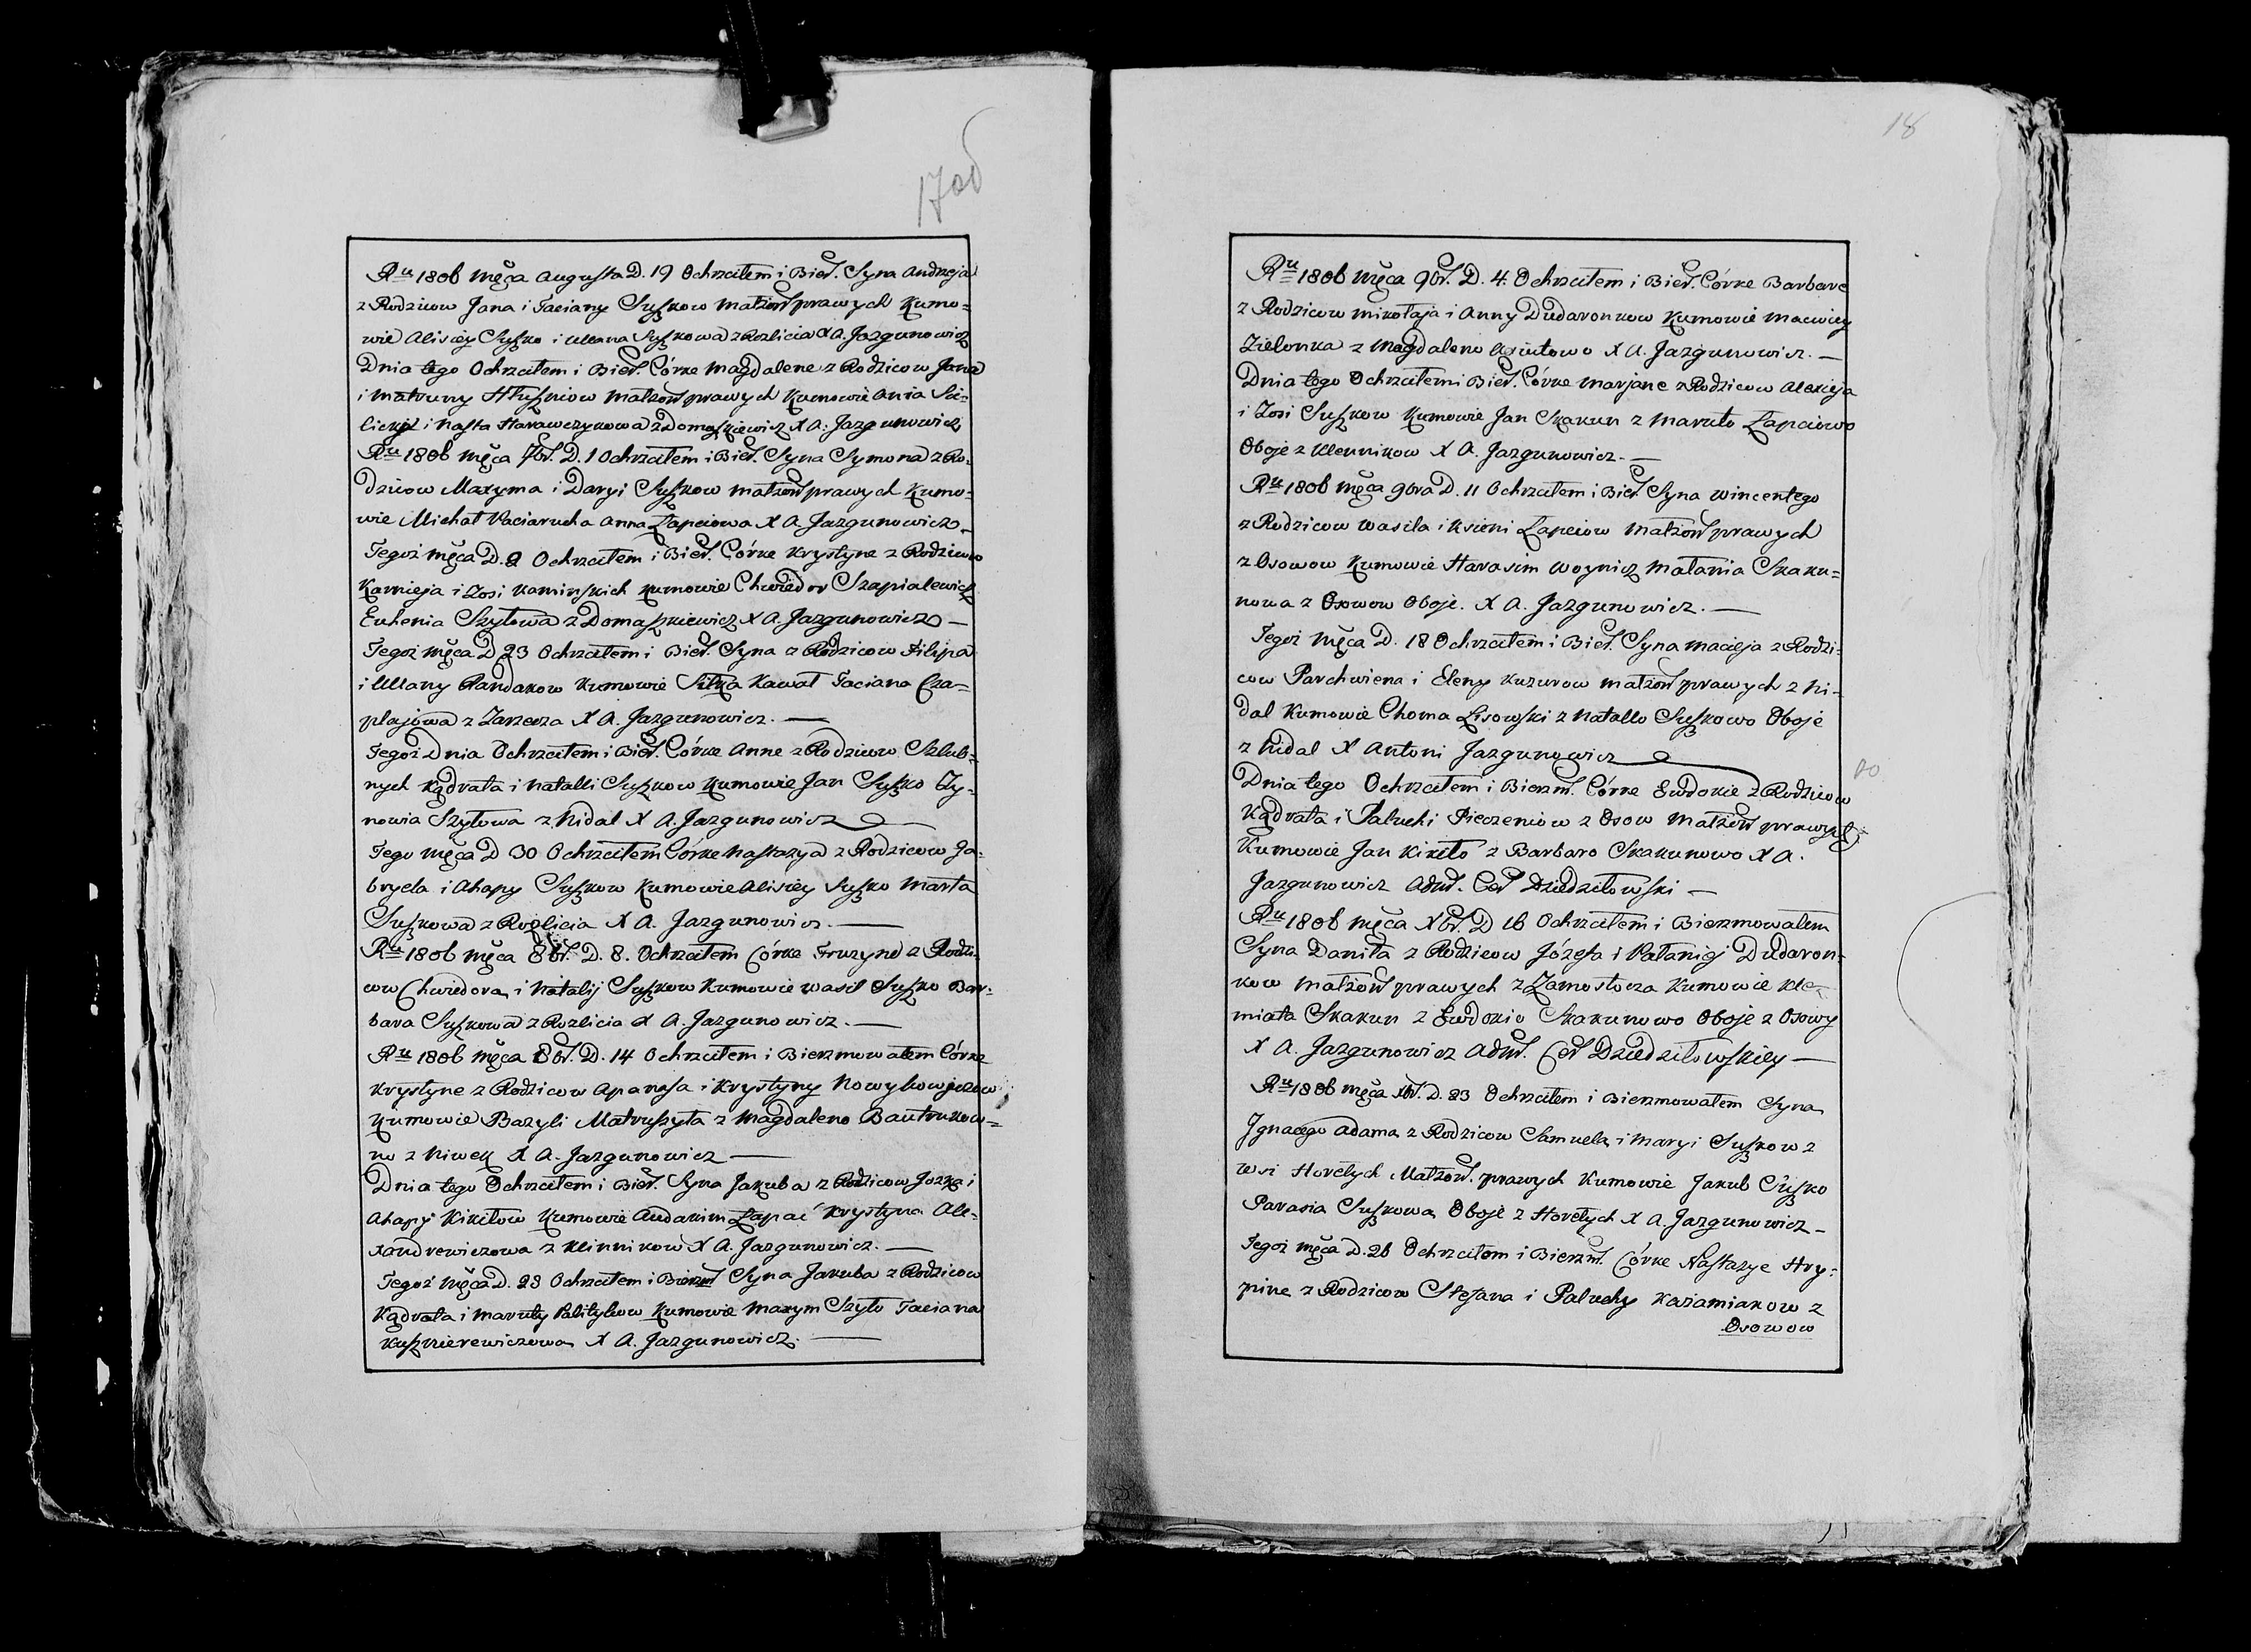 17 об
Ru 1806 męca Augusta D. 19 Ochrzciłem i Bier. Syna Andrzeja
z Rodzicow Jana i Taciany Suszkow małżow prawych Kumo-
wie Alisiey Suszko i Ullana Suszkowa z Rozlicia X A. Jazgunowicz
Dnia tego Ochrzciłem i Bier. Córke Magdalene z Rodzicow Jana
i Matruny Hłuszniow małżow prawych Kumowie Ania Sie-
lickji i Nasta Harawczykowa z Domaszkiewicz X A. Jazgunowicz
Ru 1806 męca 7br. D. 1 Ochrzciłem i Bier. Syna Symona z Ro-
dzicow Maxyma i Daryi Suszkow małżow prawych Kumo-
wie Michał Kaciarucha Anna Łapciowa X A. Jazgunowicz
Tegoż męca D. 2 Ochrzciłem i Bier. Córke Krystyne z Rodzicow
Karnieja i Zosi Kaminskich Kumowie Chwiedor Szapialewicz
Euhenia Szyłowa z Domaszkiewicz X A. Jazgunowicz
Tegoż męca D 23 Ochrzciłem i Bier. Syna z Rodzicow Filipa
i Ullany Randakow Kumowie Siłka Kawal Taciana Cza-
płajowa z Zarzecza X A. Jazgunowicz. —
Tegoż Dnia Ochrzciłem i Bier. Córke Anne z Rodzicow Szlub-
nych Kądrata i Natalli Suszkow Kumowie Jan Suszko Zy-
nowia Szyłowa z Nidal X A. Jazgunowicz
Tego męca D 30 Ochrzciłem Córke Nastazya z Rodzicow Ga-
bryela i Ahapy Suszkow Kumowie Alisiey Suszko Marta
Suszkowa z Rozlicia X A. Jazgunowicz. —
Ru 1806 męca 8br. D. 8. Ochrzciłem Córke Fruzyne z Rodzi-
cow Chwiedora i Natalij Suszkow Kumowie Wasil Suszko Bar-
bara Suszkowa z Rozlicia X A. Jazgunowicz. —
Ru 1806 męca 8br. D. 14 Ochrzciłem i Bierzmowałem Córke
Krystyne z Rodzicow Apanasa i Krystyny
Kumowie Bazyli Matruszyła z Magdaleno Bautrukow-
no z Niwek X A. Jazgunowicz —
Dnia tego Ochrzciłem i Bier. Syna Jakuba z Rodzicow Jozka i
Ahapy Kikiłow Kumowie Audakim Łapać Krystyna Ale-
xandrewiczowa z Klinnikow X A. Jazgunowicz. —
Tegoż męca D. 23 Ochrzciłem i Bierzm Syna Jakuba z Rodzicow
Kądrata i Maruty Palitykow Kumowie Maxym Szyło Taciana
Kusznierewiczowa X A. Jazgunowicz. —
18
Ru 1806 męca 9br. D. 4. Ochrzciłem i Bier. Córke Barbare
z Rodzicow Mikołaja i Anny Dudaronkow Kumowie Maciey
Zielonka z Magdaleno X A. Jazgunowicz. —
Dnia tego Ochrzciłem i Bier. Córke Marjane z Rodzicow Alexieja
i Zosi Suszkow Kumowie Jan Skakun z Maruto Łapciowo
Oboje z Klennikow X A. Jazgunowicz. —
Ru 1806 męca 9bra D. 11 Ochrzciłem i Bier. Syna Wincentego
z Rodzicow Wasila i Ksieni Łapciow małżow prawych
z Osowow Kumowie Harasim Woznicz Małania Skaku-
nowa z Osowow Oboje. X A. Jazgunowicz. —
Tegoż męca D. 18 Ochrzciłem i Bier. Syna Macieja z Rodzi-
cow Parchwiena i Eleny Kuzurow małżow prawych z Ni-
dal Kumowie Choma Lisowski z Natallo Suszkowo Oboje
z Nidal X Antoni Jazgunowicz
Dnia tego Ochrzciłem i Bierzm. Córke Ewdokie z Rodzicow
Kądrata i Paluchi Pieczeniow z Osow małżow prawych
Kumowie Jan Kikiło z Barbaro Skakunowo X A.
Jazgunowicz Adm. Cer Dziedziłowski —
Ru 1806 męca Xbr. D 16 Ochrzciłem i Bierzmowałem
Syna Daniła z Rodzicow Józefa i Pałanij Dudaron-
kow małżow prawych z Zamostocza Kumowie Kle-
miata Skakun z Ewdokio Skakunowo Oboje z Osowy
X A. Jazgunowicz Adm. Cer Dziedziłowskiey —
Ru 1806 męca Xbr. D. 23 Ochrzciłem i Bierzmowałem Syna
Ignacego Adama z Rodzicow Samuela i Maryi Suszkow z
wsi Horełych Małżow. prawych Kumowie Jakub Suszko
Parasia Suszkowa Oboje z Horełych X A. Jazgunowicz —
Tegoż męca D. 26 Ochrzciłem i Bierzm. Córke Nastazye Hry-
pine z Rodzicow Stefana i Paluchy Kaziamiakow z
Osowow